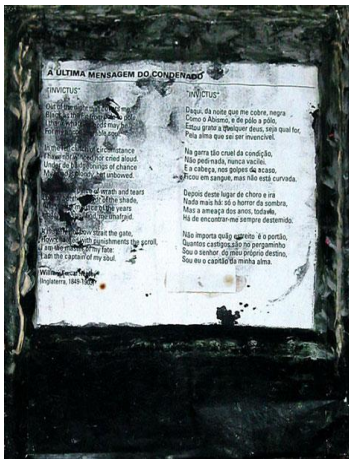 A ÚLTIMA MENSAGEM DO CONDENADO
"INVICTUS"
Out of the night that
Black as the
I thank whatever gods may be
For my
In the fell clutch of circumstance
I have not winced nor cried aloud.
Under the bludgeonings of chance
My head is bloody, but unbowed.
of wrath and tears
of the shade,
of the years
me unafraid.
how strait the gate,
How charged with punishments the scroll,
I am the master of my fate:
I am the captain of my soul.
William
(Inglaterra, 1849-
"INVICTUS"
Daqui, da noite que me cobre, negra
Como o Abismo, e de pólo a pólo,
Estou grato a qualquer deus, seja qual for,
Pela alma que sei per invencível.
Na garra tão cruel da condição,
Não pedi nada, nunca vacilei.
E a cabeça, nos golpes do acaso,
Ficou em sangue, mas não está curvada.
Depois deste lugar de choro e ira
Nada mais há: só o horror da sombra,
Mas a ameaça dos anos, todavia,
Há de encontrar-me sempre destemido.
Não importa quão estreito é o portão,
Quantos castigos são no pergaminho
Sou o senhor do meu próprio destino,
Sou eu o capitão da minha alma.